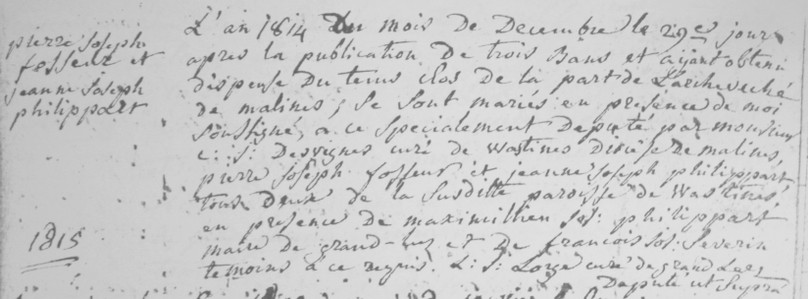 pierre Joseph
fosseur et
jeanne joseph
philippart
L'an 1814 Du mois de Decembre le 29es jour
apres la publication De trois Bans et aijant obtenu
dispense Du tems clos de la part de L'archeveché
de malines, se sont mariés en presence de moi
soussigné, a ce specialement Deputé par monsieur
c: j: Desvignes curé de Wastines Diocese de malines,
pierre joseph fosseur et jeanne joseph philippart
tous Deux de la susditte paroisse de Wastines,
en presence de maximilien jos: philippart
maire de grand-leez et De francois jos: Severin
temoins a ce requis. L: j: Lorge curé de grand Leez
Deputé ut supra
1815